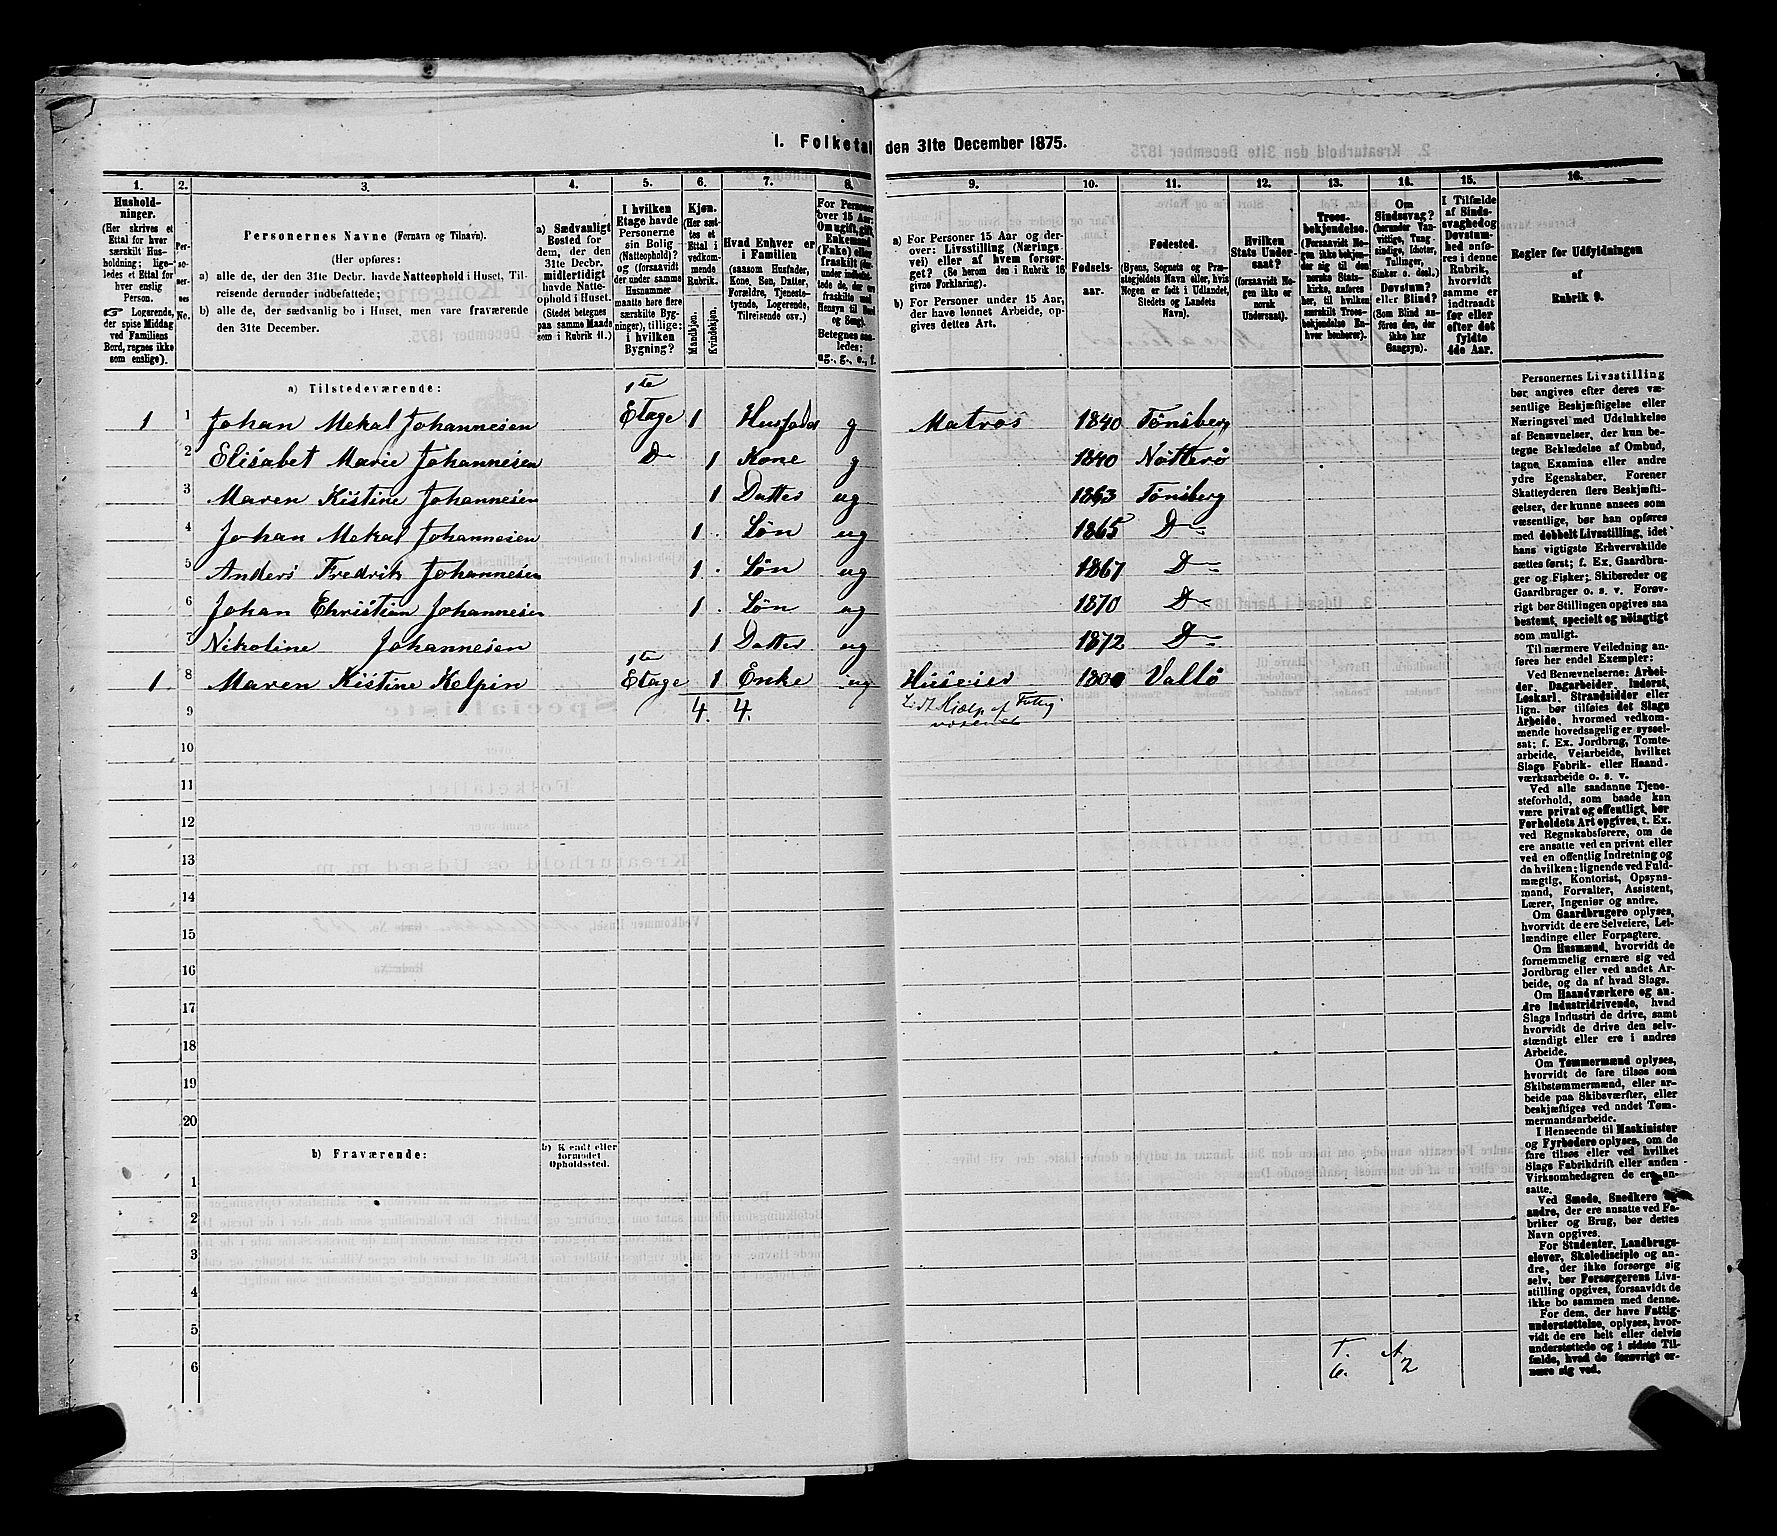 1. Folketal den 31te December 1875.
1. 2. 3. 4. 5. 6. 7. 8. 9. 10. 11. 12. 13. 14. 15. 16.
Hushold-
ninger.
(Her skrives et
Ettal for hver
særskilt Hus-
holdning; lige-
ledes et Ettal for
hver enslig
Person.
☞ Logerende,
der spise Middag
ved Familiens
Bord, regnes ikke
som enslige).
Per-
so-
ner-
nes
No.
Personernes Navne (Fornavn og Tilnavn).
(Her opføres:
a) alle de, der den 31te Decbr. havde Natteophold i Huset, Til-
reisende derunder indbefattede;
b) alle de, der sædvanlig bo i Huset, men vare fraværende
den 31te December.
a) Sædvanligt
Bosted for
dem, der den
31te Decbr.
midlertidigt
havde Natte-
ophold i Huset.
(Stedet betegnes
paa samme Maade
som i Rubrik 11.)
I hvilken
Etage havde
Personerne
sin Bolig
(Natteophold)?
og (forsaavidt
der under samme
Husnummer
maatte høre flere
særskilte Byg-
ninger), tillige:
i hvilken
Bygning?
Kjøn.
(Her sæt-
tes et
Ettal i
vedkom-
mende
Rubrik.
Mandkjøn.
Kvindekjøn.
Hvad Enhver er
i Familien
(saasom Husfader,
Kone, Søn, Datter,
Forældre, Tjeneste-
tyende, Logerende,
Tilreisende osv.)
For Personer
over 15 Aar:
Om ugift, gift,
Enkemand
(Enke) eller
fraskilt
Betegnes saa-
ledes:
ug., g., e., f.
a) For Personer 15 Aar og der-
over: Livsstilling (Nærings-
vei) eller af hvem forsør-
get? (Se herom den i Rubrik 16
givne Forklaring).
b) For Personer under 15 Aar,
der have lønnet Arbeide, op-
gives dettes Art.
Fødsels-
aar.
Fødested.
(Byens, Sognets og Præ-
stegjeldets Navn eller, hvis
Nogen er født i Udlandet,
Stedets og Landets
Navn).
Hvilken
Stats Under-
saat?
(forsaavidt No-
gen ikke er
norsk
Undersaat).
Troes-
bekjendelse.
(Forsaavidt No-
gen ikke bekjen-
der sig til den
norske Stats-
kirke, anføres
her, til hvilken
særskilt Troes-
bekjendelse En-
hver henhører).
Om
Sindssvag?
(herunder Van-
vittige, Tung-
sindige, Idioter,
Tullinger,
Sinker o. desl.)
Døvstum?
eller Blind?
(Som Blind an-
føres den, der
ikke har
Gangsyn).
I Tilfælde
af Sinds-
svaghed og
Døvstum-
hed anfø-
res i denne
Rubrik,
hvorvidt
samme er
indtraadt
før eller
efter det
fyldte
4de Aar.
Regler for Udfyldningen
af
Rubrik 9.
a) Tilstedeværende:
1 1 Johan Mekal Johannesen 1te Etage 1 Husfader g Matros 1840 Tønsberg
2 Elisabet Marie Johannesen D 1 Kone g 1840 Nøtterø
3 Maren Kistine Johannesen 1 Datter ug 1863 Tønsberg
4 Johan Mekal Johannesen 1 Søn ug 1865 D
5 Anders Fredrik Johannesen 1 Søn ug 1867 D
6 Johan Christian Johannesen 1 Søn ug 1870 D
7 Nikoline Johannesen 1 Datter ug 1872 D
1 8 Maren Kistine Kelpin 1te Etage 1 Enke ug 1800 Vallø
9 4. 4. Lidt Hjælp af Fattig
væsenet
10
11
12
13
14
15
16
17
18
19
20
b) Fraværende:
b) Kjendt eller
formodet
Opholdssted.
1
2
3
4
5
6
T. 6. A. 2
Personernes Livsstilling
bør angives efter deres væ-
sentlige Beskjæftigelse eller
Næringsvei med Udelukkelse
af Benævnelser, der kun be-
tegne Beklædelse af Ombud,
tagne Examina eller andre
ydre Egenskaber. Forener
Skatteyderen flere Beskjæfti-
gelser, der kunne ansees som
væsentlige, bør han opføres
med dobbelt Livsstilling, idet
hans vigtigste Erhvervskilde
sættes først; f. Ex. Gaardbru-
ger og Fisker; Skibsreder og
Gaardbruger o. s. v. Forøv-
rigt bør Stillingen opgives saa
bestemt, specielt og nøiagtigt
som muligt.
Til nærmere Veiledning an-
føres her endel Exempler:
Ved Benævnelserne: Arbei-
der, Dagarbeider, Inderst,
Løskarl, Strandsidder eller
lign. bør tilføies det Slags
Arbeide, hvormed vedkom-
mende hovedsagelig er syssel-
sat; f. Ex. Jordbrug, Tomte-
arbeide, Veiarbeide, hvilket
Slags Fabrik- eller Haand-
værksarbeide o. s. v.
Ved alle saadanne Tjene-
steforhold, som baade kan
være privat og offentligt, bør
Forholdets Art opgives, t. Ex.
ved Regnskabsførere, om de
ere ansatte ved en privat eller
ved en offentlig Indretning og
da hvilken; lignende ved Fuld-
mægtig, Kontorist, Opsyns-
mand, Forvalter, Assistent,
Lærer, Ingeniør og andre.
Om Gaardbrugere oplyses,
hvorvidt de ere Selveiere, Lei-
lændinge eller Forpagtere.
Om Husmænd, hvorvidt de
fornemmelig ernære sig ved
Jordbrug eller ved andet Ar-
beide, og da af hvad Slags.
Om Haandværkere og an-
dre Industridrivende, hvad
Slags Industri de drive, samt
hvorvidt de drive den selv-
stændigt eller ere i andres
Arbeide.
Om Tømmermænd oplyses,
hvorvidt de fare tilsøs som
Skibstømmermænd, eller ar-
beide paa Skibsværfter, eller
beskjæftiges ved andet Tøm-
mermandsarbeide.
I Henseende til Maskinister
og Fyrbødere oplyses, om de
fare tilsøs eller ved hvilket
Slags Fabrikdrift eller anden
Virksomhedsgren de ere an-
satte.
Ved Smede, Snedkere og
andre, der ere ansatte ved Fa-
briker og Brug, bør dettes
Navn opgives.
For Studenter, Landbrugs-
elever, Skoledisciple og an-
dre, der ikke forsørge sig
selv, bør Forsørgerens Livs-
stilling opgives, forsaavidt de
ikke bo sammen med denne.
For dem, der have Fattig-
understøttelse, oplyses, hvor-
vidt de ere helt eller delvis
understøttede og i sidste Til-
fælde, hvad de forøvrigt er-
nære sig ved.